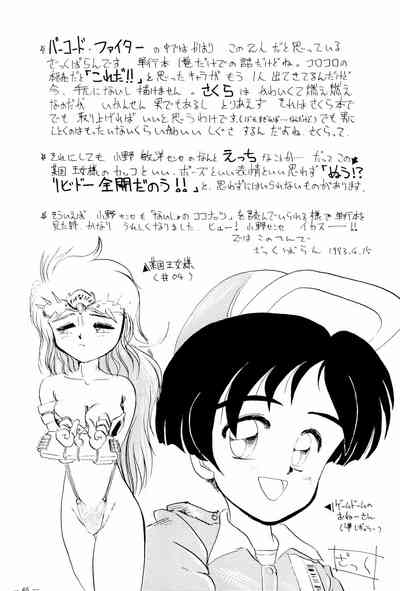 ☆バーコード・ファイター の中ではやはり この2人だと思っている
ざっくばらんです。単行本1冊だけでの話だけどね。コロコロの
「これだ!!」と思ったキャラが もう1人出てきてるんだけど
今、手元にないし描けません。さくら はかわいくて燃え燃え
なのだが いかんせん 男でもあるし とりあえず それはさくら本で
でも 取り上げれば いいと思うわけで でも男に
しとくのは もったいないくらい かわいい しぐさ するんだよね、さくらって.
☆それにしても 小野 敏洋 センセの なんと えっち なことか… だってこの
某国王女様の カッコといい、ポーズといい 表情といい 思わず 「ぬう!?
リビドー全開だのう!!」 と、思わずにはいられないものがあります.
☆そういえば 小野センセも「ないしょのココナッツ」を読んでいられる様で 単行本を
見た時、かなり うれしくなりました. ヒュー! 小野センセ イカスー!!
ではこのへんで
ざっくばらん 1993.6.15
某国王女様
(#04)
ゲームドームの
おねーさん
ざっく